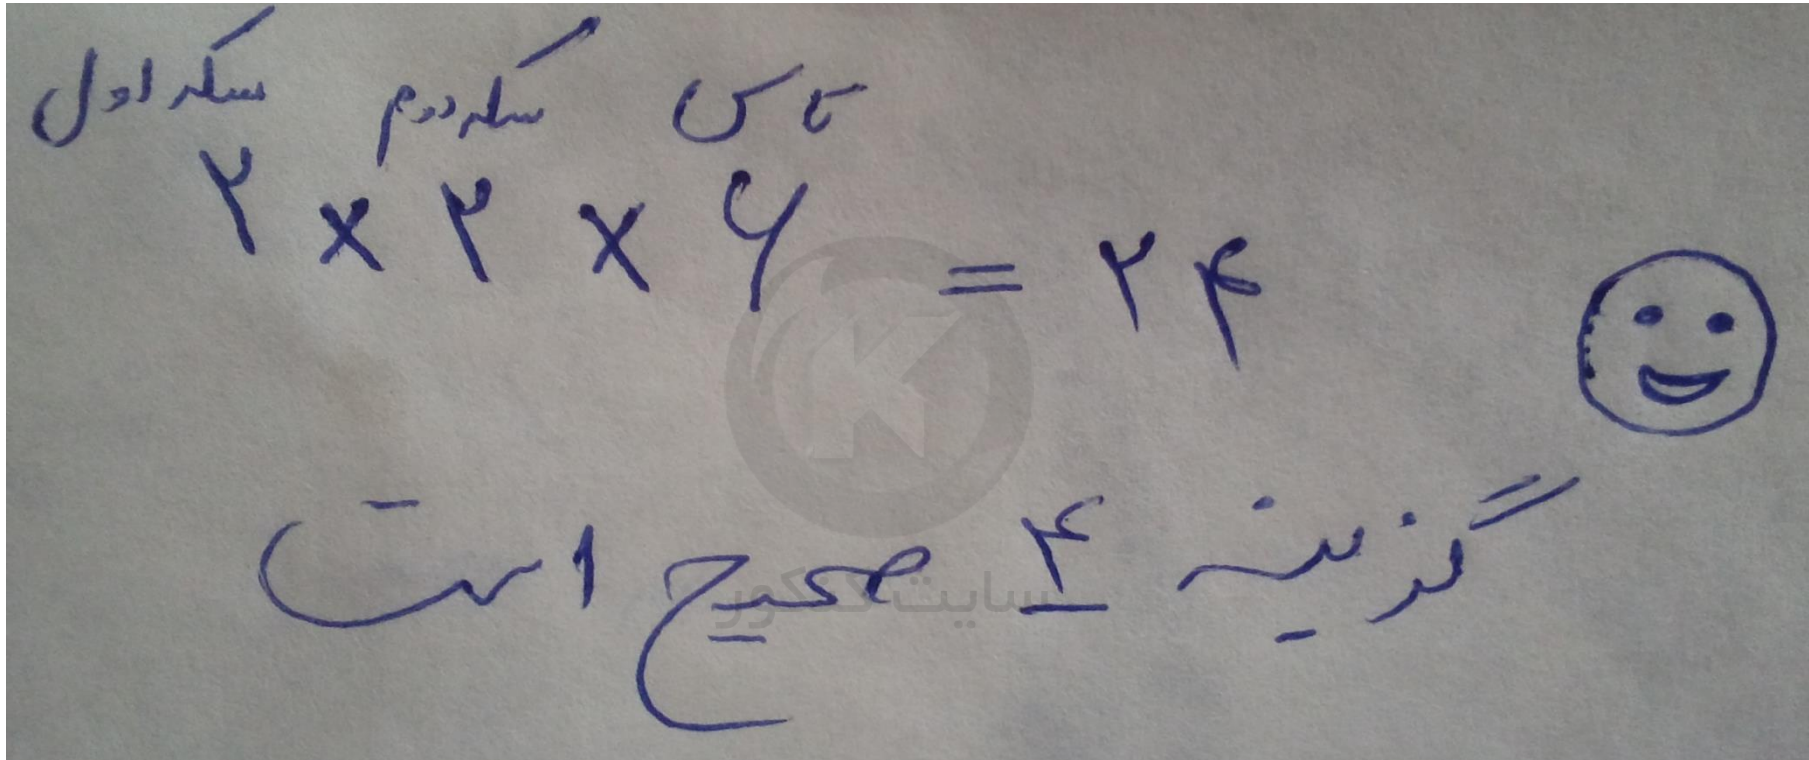 سکه اول سکه دوم تاس
۲ × ۲ × ۶ = ۲۴
گزینه ۴ صحیح است
سایت کنکور